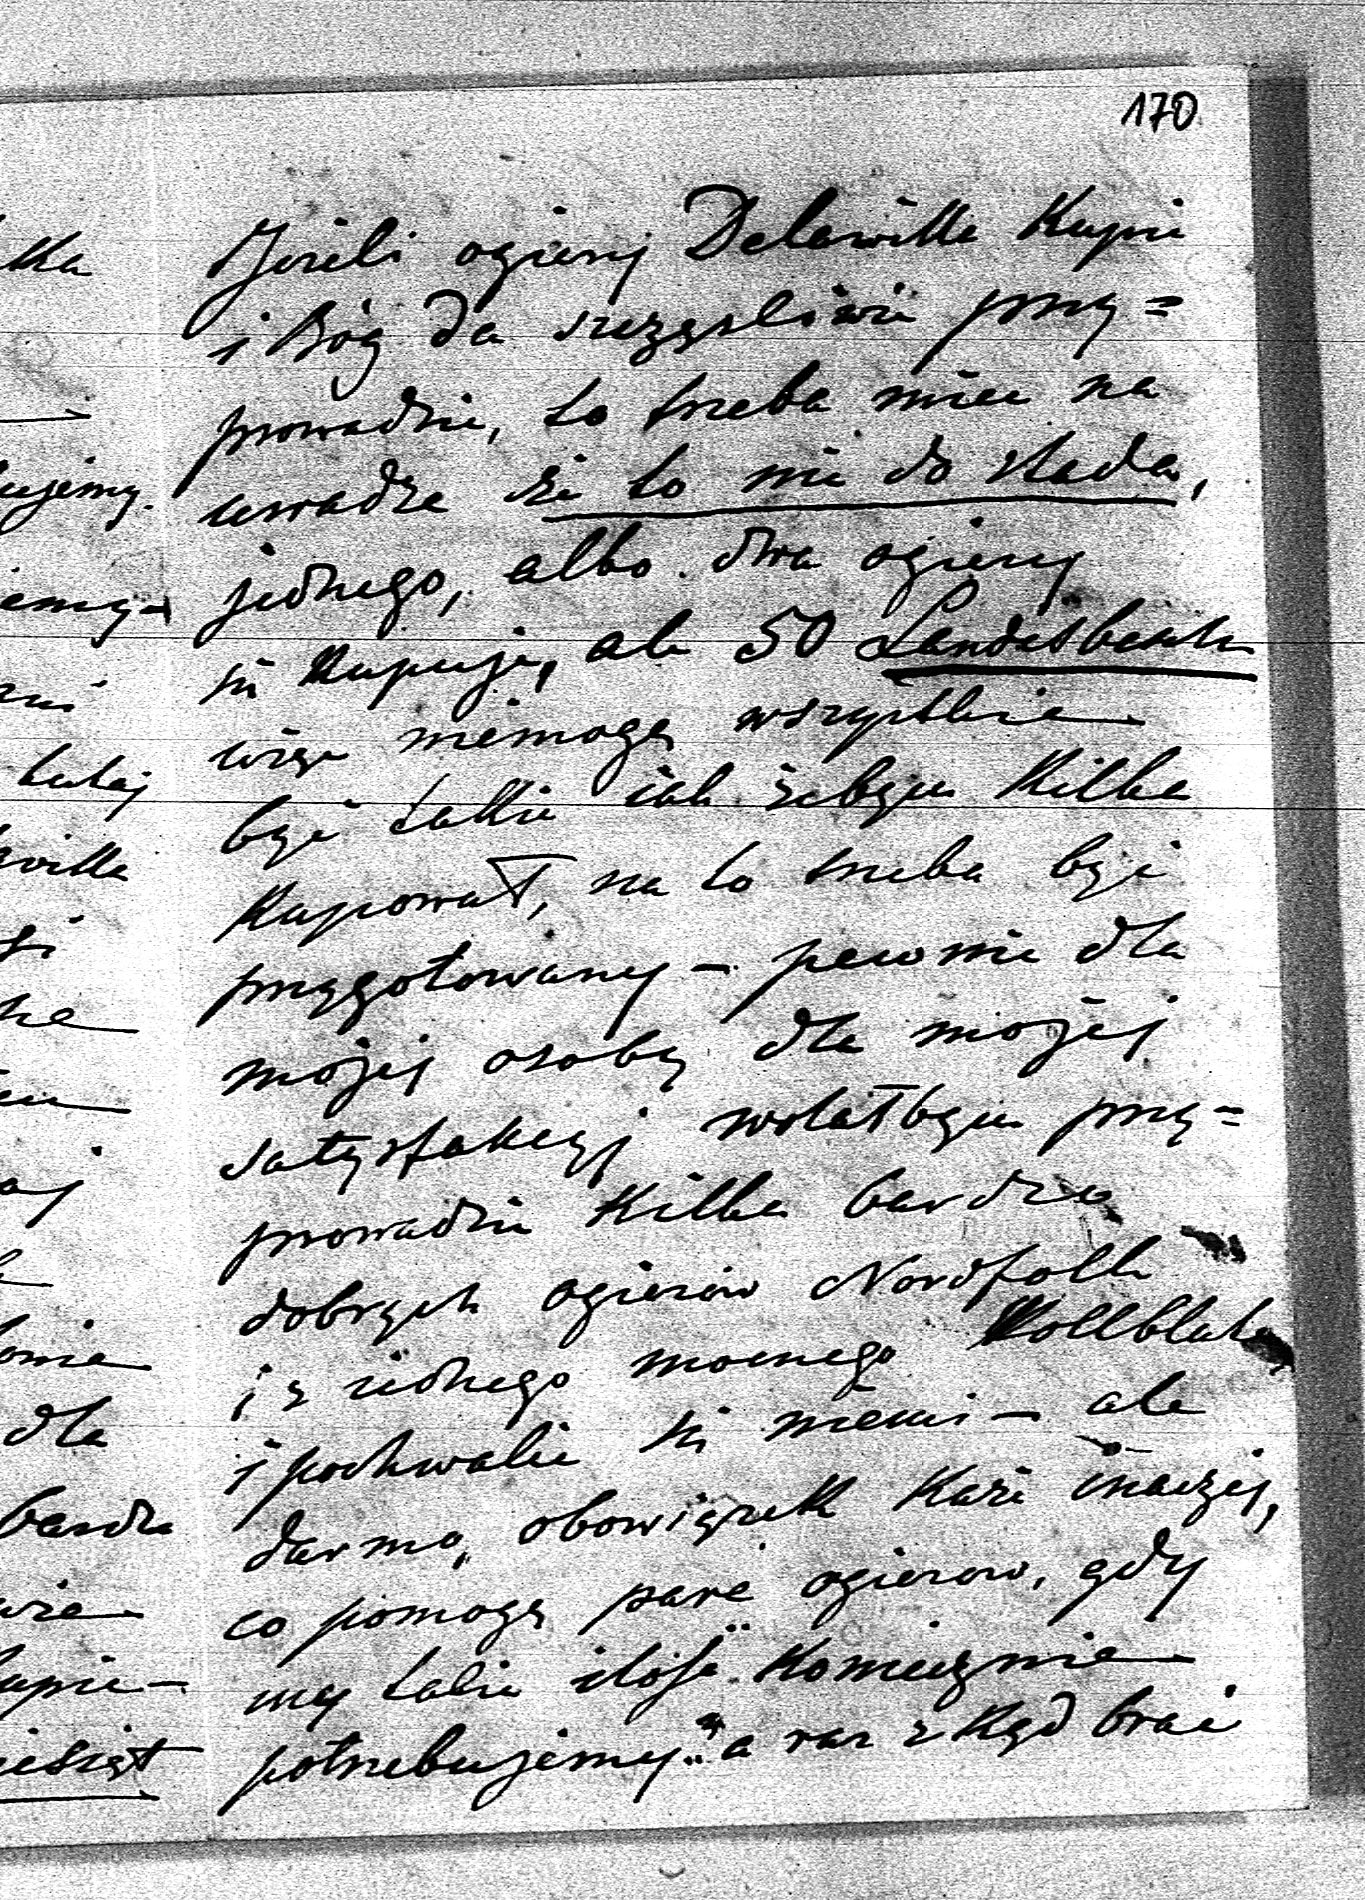 170
Jeżeli ogiery Delawilla Kupię
i Bóg da szczęśliwie przy=
prowadzić, to trzeba mieć na
uwadze że to nie do stada,
jednego, albo dwa ogiery
się Kupuje, ale 50 Landesbeschl
więc niemogą wszystkie
być takie jak żebym Kilka
Kupował, na to trzeba być
przygotowany – pewnie dla
mojej osoby dla mojej
satysfakcyj wolałbym przy=
prowadzić Kilka bardzo
dobrych ogierów Nordfolk
i z jednego mocnego Vollbluta
i pochwalić się niemi – ale
darmo, obowiązek Każe inaczej,
co pomogą pare ogierow, gdy
my takie ilość Koniecznie
potrzebujemy. a raz z Kąd brać
ujemy.
tutaj
willa
dla
bardzo